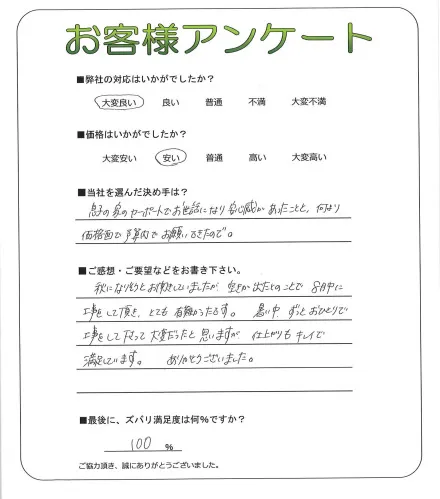 お客様アンケート
■弊社の対応はいかがでしたか？
大変良い 良い 普通 不満 大変不満
■価格はいかがでしたか？
大変安い 安い 普通 高い 大変高い
■当社を選んだ決め手は？
息子の家のカーポートでお世話になり安心感があったことと、何より
価格面で予算内でお願いできたので。
■ご感想・ご要望などをお書き下さい。
秋になりそうとお伺きしていましたが、空きが出たとのことで 8月中に
工事をして頂き、とても有難かったです。 暑い中、ずっとおひとりで
工事をして下さって大変だったと思いますが 仕上がりもキレイで
満足しています。 ありがとうございました。
■最後に、ズバリ満足度は何%ですか？
100 %
ご協力頂き、誠にありがとうございました。